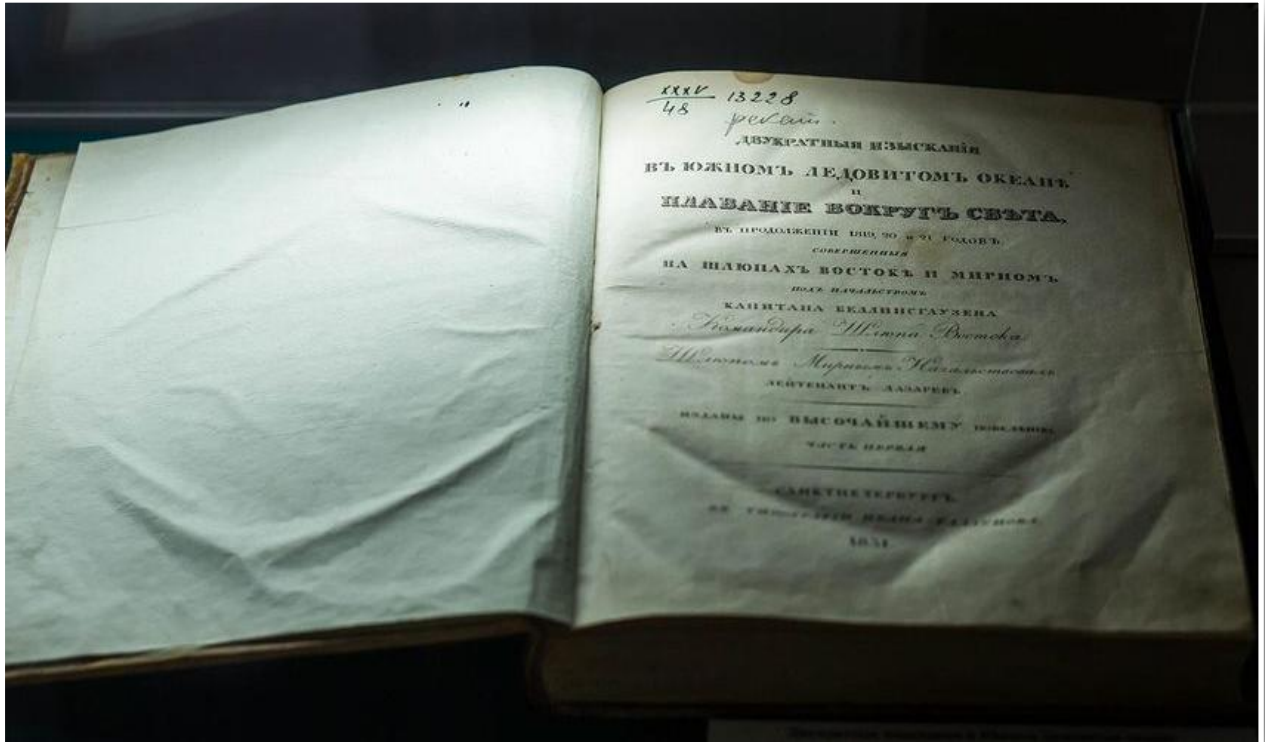 XXXV 13228
48
ДВУКРАТНЫЯ ИЗЫСКАНІЯ
ВЪ ЮЖНОМЪ ЛЕДОВИТОМЪ ОКЕАНѢ
И
ПЛАВАНІЕ ВОКРУГЪ СВѢТА,
ВЪ ПРОДОЛЖЕНІИ 1819, 20 и 21 ГОДОВЪ,
СОВЕРШЕННЫЯ
НА ШЛЮПАХЪ ВОСТОКѢ И МИРНОМЪ
ПОДЪ НАЧАЛЬСТВОМЪ
КАПИТАНА БЕЛЛИНСГАУЗЕНА
Командира Шлюпа Востока
Шлюпомъ Мирнымъ Начальствовалъ
ЛЕЙТЕНАНТЪ ЛАЗАРЕВЪ.
ИЗДАНЫ ПО ВЫСОЧАЙШЕМУ ПОВЕЛѢНІЮ.
ЧАСТЬ ПЕРВАЯ
САНКТПЕТЕРБУРГЪ.
ВЪ ТИПОГРАФІИ ИВАНА ГЛАЗУНОВА
1831